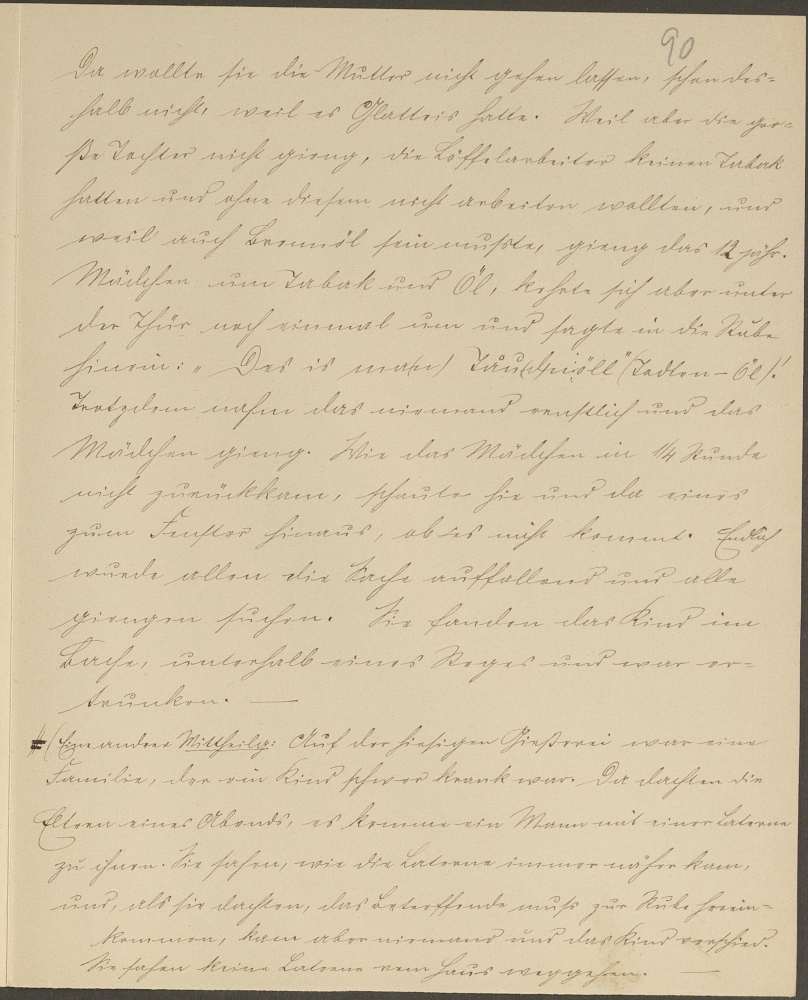 90
Da wollte sie die Mutter nicht gehen lassen, schon des-
halb nicht, weil es Glatteis hatte. Weil aber die gro-
ße Tochter nicht gieng, die Löffelarbeiter keinen Tabak
hatten und ohne diesem nicht arbeiten wollten, und
weil auch Brennöl sein mußte, gieng das 12 jähr.
Mädchen um Tabak und Öl, kehrte sich aber unter
der Thür noch einmal um und sagte in die Stube
hinein: „Des is (Todten-Öl)!
Trotzdem nahm das niemand ernstlich und das
Mädchen gieng. Wie das Mädchen in 1/4 Stunde
nicht zurückkam, schaute hie und da eines
zum Fenster hinaus, ob es nicht komme. Endlich
wurde allen die Sache auffallend und alle
giengen suchen. Sie fanden das Kind im
Bache, unterhalb eines Steges und war er-
trunken. —
(Eine andere Mittheilg: Auf der hiesigen Gießerei war eine
Familie, der ein Kind schwer krank war. Da dachten die
Eltern eines Abends, es komme ein Mann mit einer Laterne
zu ihnen. Sie sahen, wie die Laterne immer näher kam,
und, als sie dachten, das Betreffende muß zur Stube herein-
kommen, kam aber niemand und das Kind verschied.
Sie sahen keine Laterne vom Haus weggehen. —